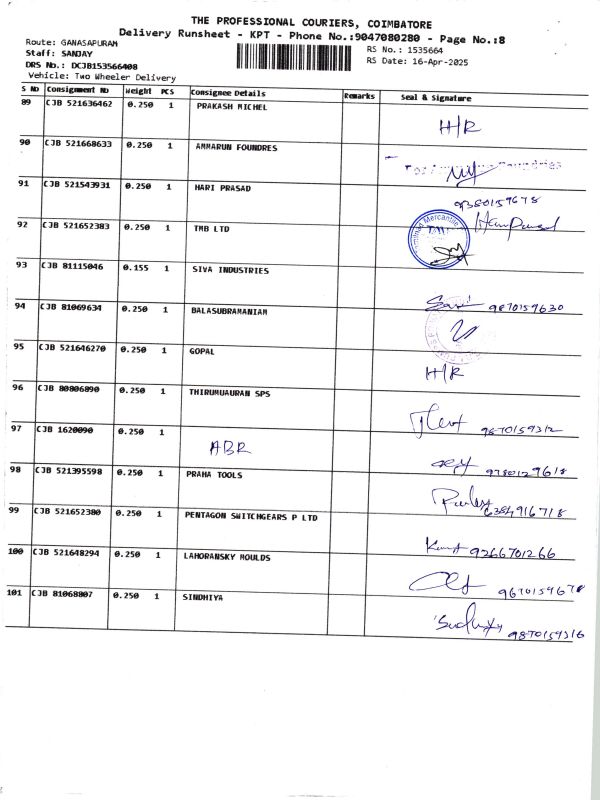 THE PROFESSIONAL COURIERS, COIMBATORE
Delivery Runsheet - KPT - Phone No.:9047080280 - Page No.:8
Route: GANASAPURAM
RS No.: 1535664
Staff: SANJAY
RS Date: 16-Apr-2025
DRS No.: DCJB153566408
Vehicle: Two Wheeler Delivery
S No Consignment No Weight PCS Consignee Details Remarks Seal & Signature
89 CJB 521636462 0.250 1 PRAKASH MICHEL H/R
90 CJB 521668633 0.250 1 AMMARUN FOUNDRES For Foundries
91 CJB 521543931 0.250 1 HARI PRASAD 9380159678
92 CJB 521652383 0.250 1 TMB LTD
93 CJB 81115046 0.155 1 SIVA INDUSTRIES 9870159630
94 CJB 81069634 0.250 1 BALASUBRAMANIAM
95 CJB 521646270 0.250 1 GOPAL H/R
96 CJB 80806890 0.250 1 THIRUMUAURAN SPS 9870159312
97 CJB 1620090 0.250 1 ABR 9780129618
98 CJB 521395598 0.250 1 PRAHA TOOLS 6384916718
99 CJB 521652380 0.250 1 PENTAGON SWITCHGEARS P LTD 9266701266
100 CJB 521648294 0.250 1 LAHORANSKY MOULDS 9670159678
101 CJB 81068807 0.250 1 SINDHIYA 9870159316